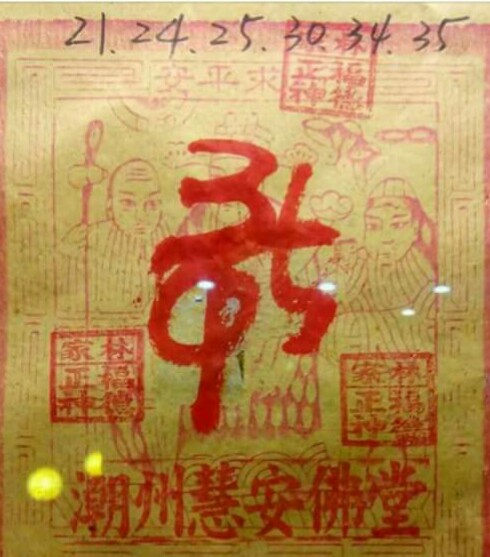 21. 24. 25. 30. 34. 35
求平安
福德正神
林福德家正神
林福德家正神
潮州慧安佛堂